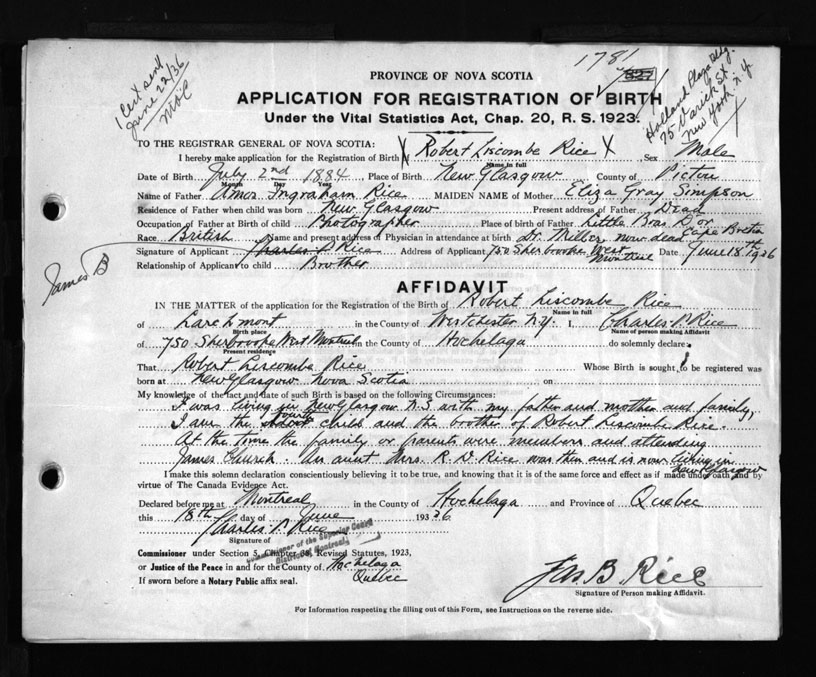 1 Cert sent
June 22/36
MOC
1781
827
Holland Plaza Bldg.
75 Varick St
New York N Y
PROVINCE OF NOVA SCOTIA
APPLICATION FOR REGISTRATION OF BIRTH
Under the Vital Statistics Act, Chap. 20, R. S. 1923.
TO THE REGISTRAR GENERAL OF NOVA SCOTIA:
I hereby make application for the Registration of Birth Robert Liscombe Rice Sex Male
Name in full
Date of Birth July 2nd 1884 Place of Birth New Glasgow County of Pictou
Month Day Year
Name of Father Amos Ingraham Rice MAIDEN NAME of Mother Eliza Gray Simpson
Residence of Father when child was born New Glasgow Present address of Father Dead
Occupation of Father at Birth of child Photographer Place of birth of Father Little Bras D'or Cape Breton
Race British Name and present address of Physician in attendance at birth Dr. Miller, now dead
Signature of Applicant Charles P. Rice Address of Applicant 750 Sherbrooke West Montreal Date June 18th 1936
James B
Relationship of Applicant to child Brother
AFFIDAVIT
IN THE MATTER of the application for the Registration of the Birth of Robert Liscombe Rice
Name in full
of Larchmont in the County of Westchester N.Y. I, Charles P. Rice
Birth place Name of person making Affidavit
of 750 Sherbrooke West Montreal in the County of Hochelaga do solemnly declare:
Present residence
That Robert Liscombe Rice Whose Birth is sought to be registered was
born at New Glasgow Nova Scotia on
My knowledge of the fact and date of such Birth is based on the following Circumstances:
I was living in New Glasgow N.S with my father and mother and family,
I am the fourth child and the brother of Robert Liscombe Rice.
At the time the family or parents were members and attending
James Church. An aunt Mrs. R. D. Rice was then and is now living in
New Glasgow
I make this solemn declaration conscientiously believing it to be true, and knowing that it is of the same force and effect as if made under oath and by
virtue of The Canada Evidence Act.
Declared before me at Montreal in the County of Hochelaga and Province of Quebec
this 18th day of June 1936
Charles P. Rice
Signature of
Commissioner of the Superior Court
District of Montreal
Commissioner under Section 5, Chapter 38, Revised Statutes, 1923,
or Justice of the Peace in and for the County of Hochelaga
Quebec
If sworn before a Notary Public affix seal.
Jas. B. Rice
Signature of Person making Affidavit.
For Information respecting the filling out of this Form, see Instructions on the reverse side.